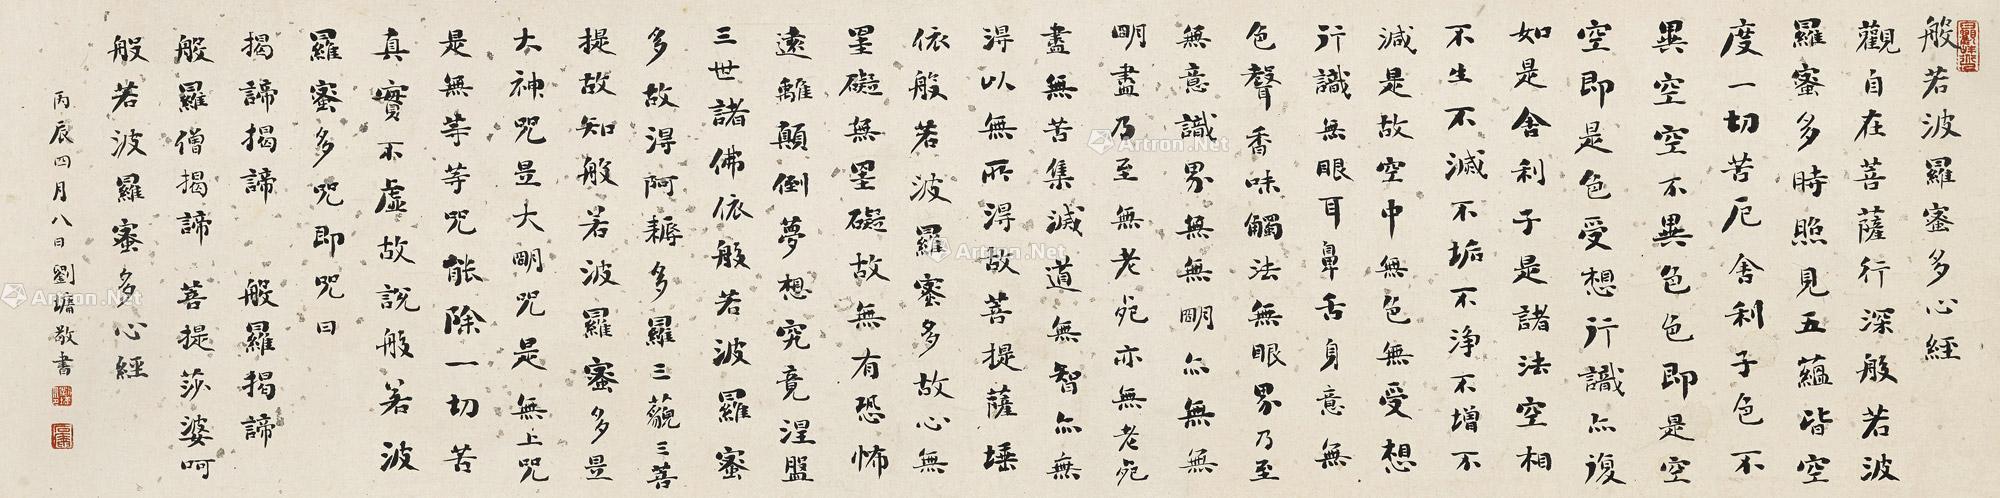 般若波羅蜜多心經
觀自在菩薩行深般若波
羅蜜多時照見五蘊皆空
度一切苦厄舍利子色不
異空空不異色色即是空
空即是色受想行識亦復
如是舍利子是諸法空相
不生不滅不垢不淨不增不
減是故空中無色無受想
行識無眼耳鼻舌身意無
色聲香味觸法無眼界乃至
無意識界無無明亦無無
明盡乃至無老死亦無老死
盡無苦集滅道無智亦無
得以無所得故菩提薩埵
依般若波羅蜜多故心無
罣礙無罣礙故無有恐怖
遠離顛倒夢想究竟涅盤
三世諸佛依般若波羅蜜
多故得阿耨多羅三藐三菩
提故知般若波羅蜜多是
大神咒是大明咒是無上咒
是無等等咒能除一切苦
真實不虛故說般若波
羅蜜多咒即咒曰
揭諦揭諦 般羅揭諦
般羅僧揭諦 菩提莎婆呵
般若波羅蜜多心經
丙辰四月八日劉墉敬書
Artron.Net
Artron.Net
Artron.Net